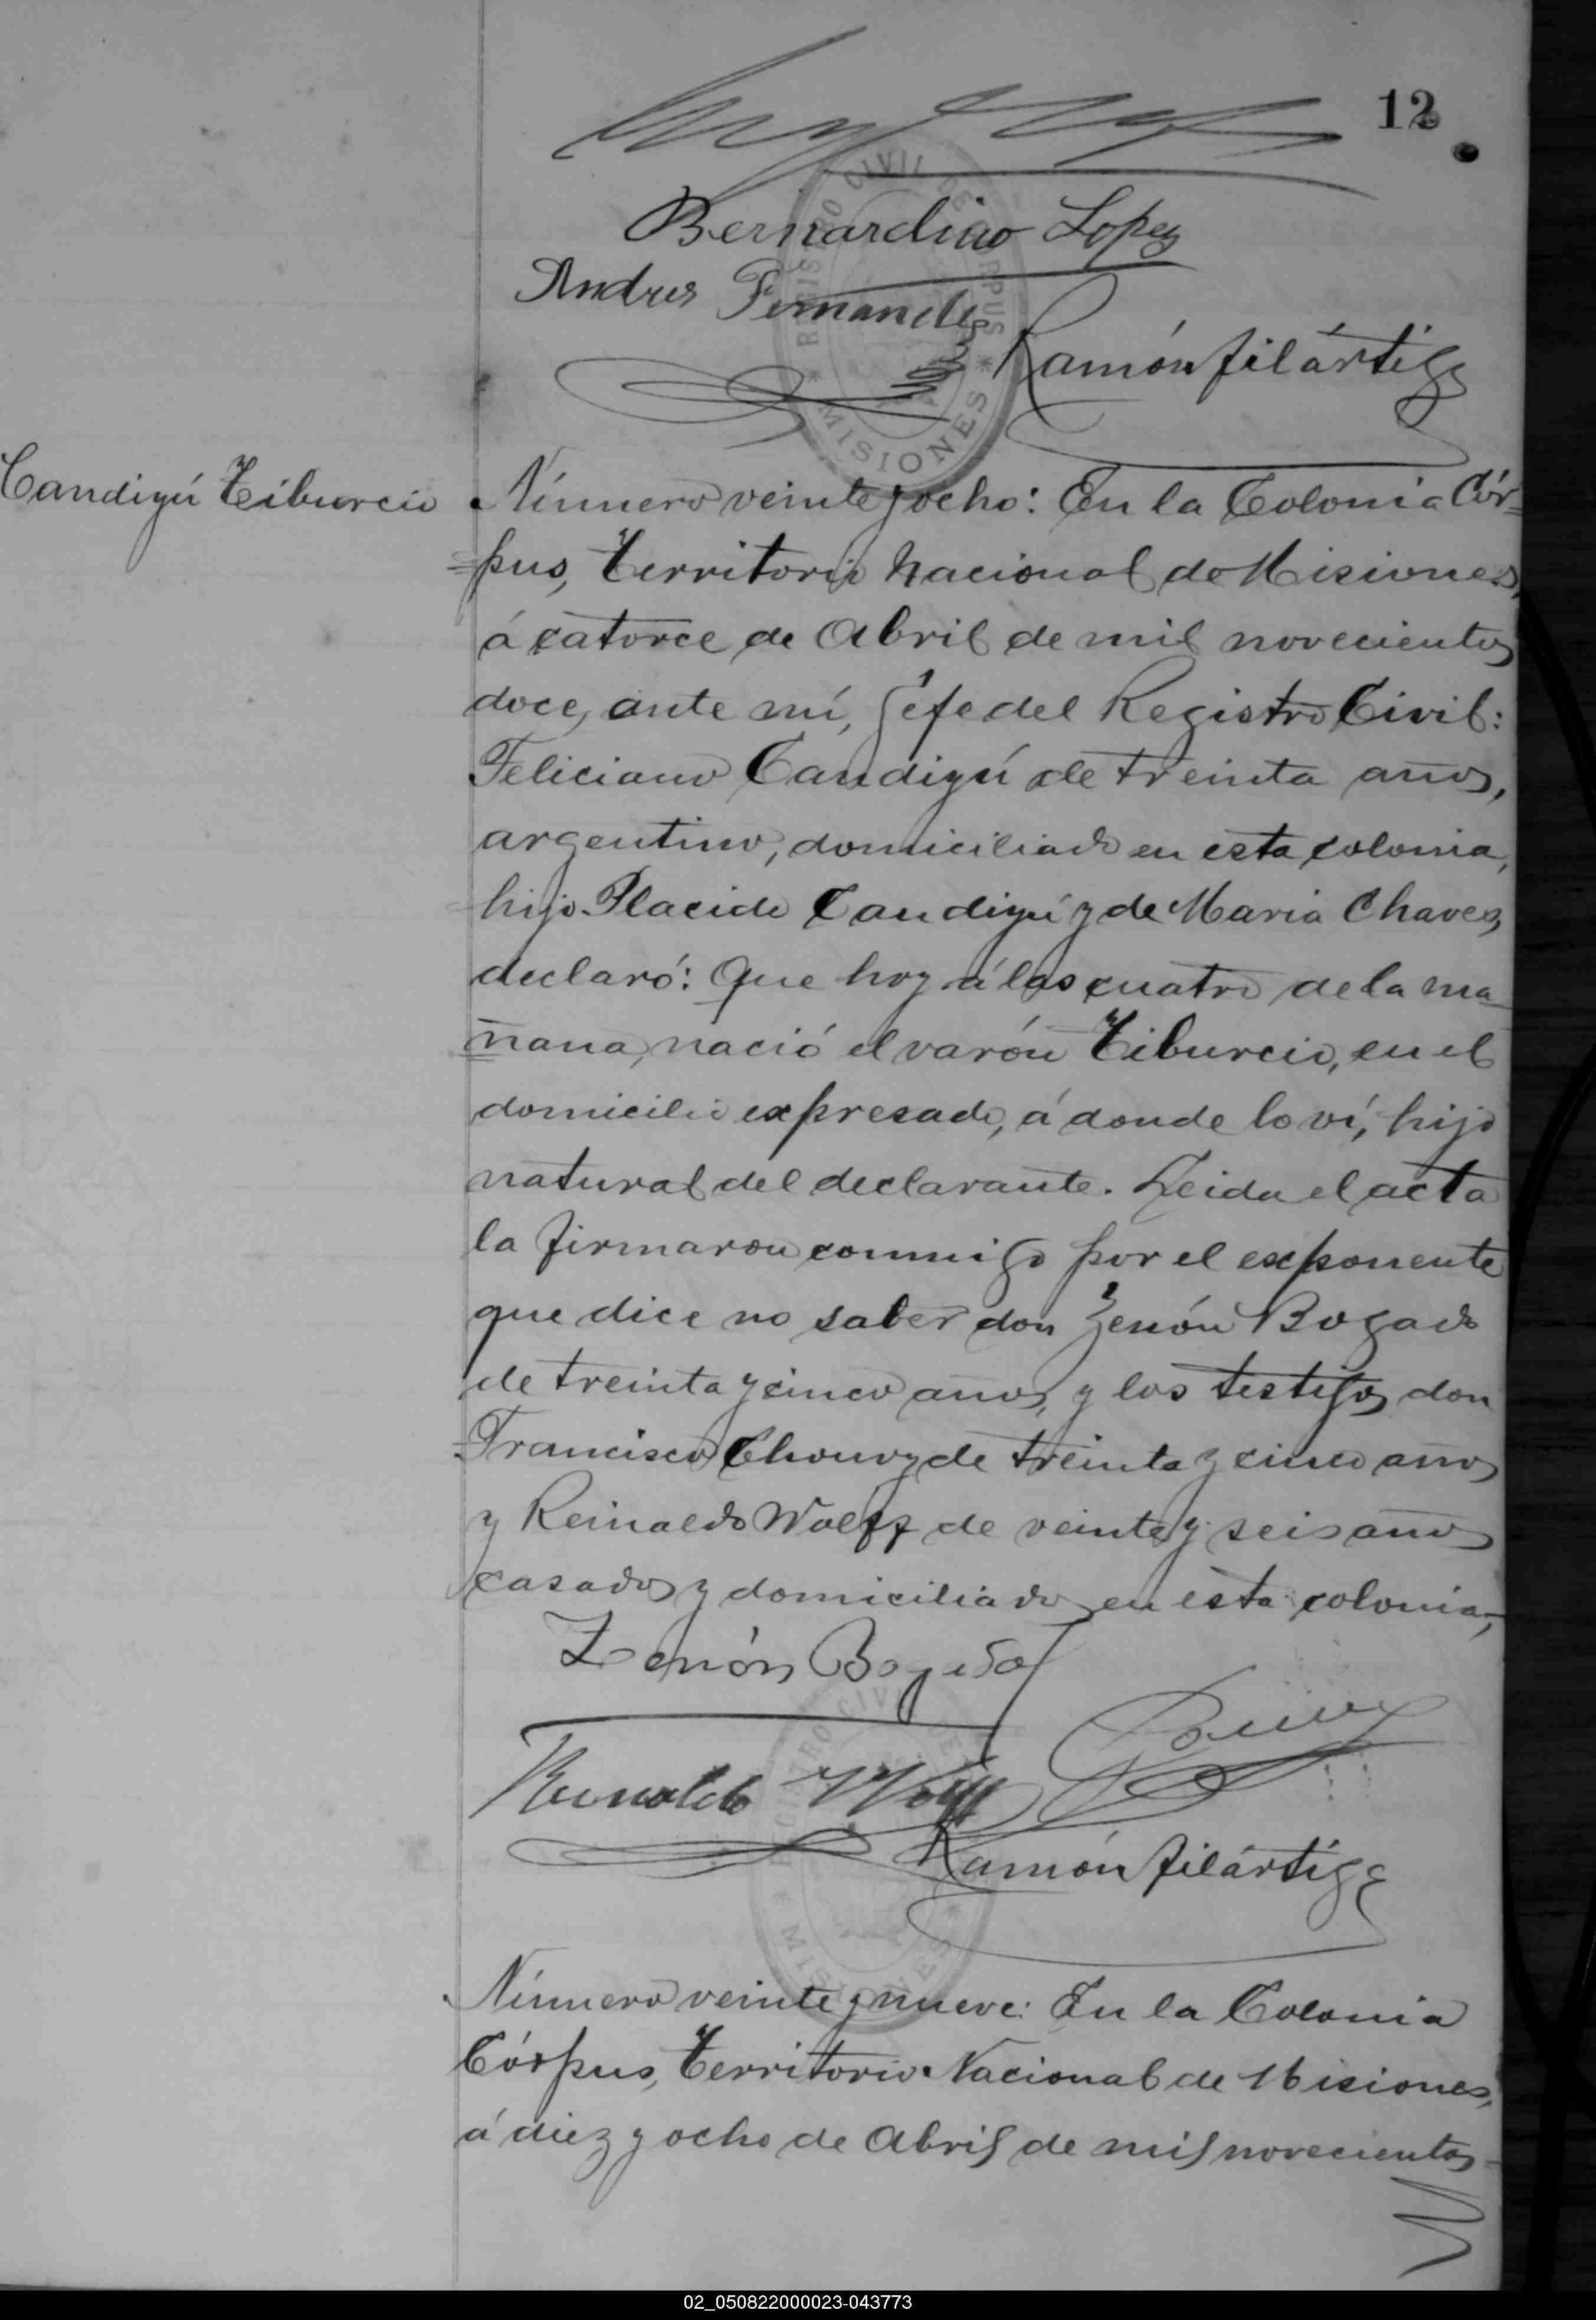 12
REGISTRO CIVIL DE CORPUS
* MISIONES *
Bernardino Lopez
Andres Fernandes
Ramón Filártiga
Candiyú Tiburcio
Número veinte y ocho: En la Colonia Cór=
=pus, Territorio Nacional de Misiones,
á catorce de Abril de mil novecientos
doce, ante mí, Jéfe del Registro Civil:
Feliciano Candiyú de treinta años,
argentino, domiciliado en esta colonia,
hijo Placido Candiyú y de Maria Chaves,
declaró: Que hoy á las cuatro de la ma_
ñana, nació el varón Tiburcio, en el
domicilio expresado, á donde lo ví, hijo
natural del declarante. Leida el acta
la firmaron conmigo por el exponente
que dice no saber don Zenón Bogado
de treinta y cinco años, y los testigos don
Francisco Chouvy de treinta y cinco años
y Reinaldo Wolff de veinte y seis años
casados y domiciliados en esta colonia,
Zenón Bogado
Reinoldo Wolff
Ramón Filártiga
REGISTRO CIVIL DE
* MISIONES *
Número veinte y nueve: En la Colonia
Córpus, Territorio Nacional de Misiones,
á diez y ocho de Abril de mil novecientos
02_050822000023-043773